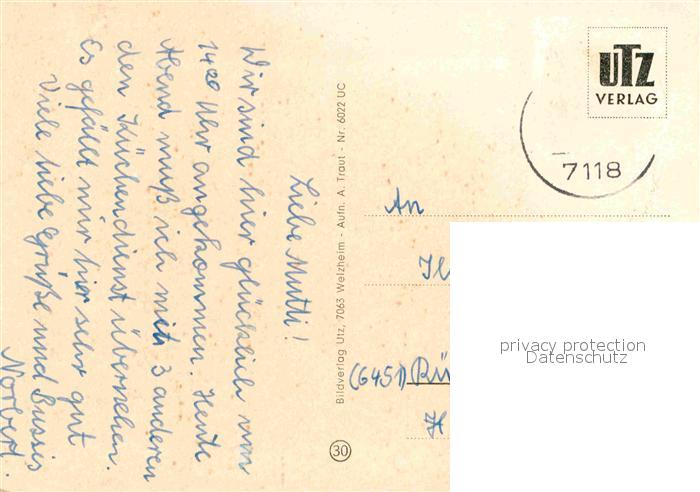 Liebe Mutti!
Wir sind hier glücklich um
14²⁰ Uhr angekommen. Heute
Abend muß ich mit 3 anderen
den Küchendienst übernehmen.
Es gefällt mir hier sehr gut
Viele liebe Grüße und Bussis
Norbert.
Bildverlag Utz, 7063 Welzheim - Aufn. A. Traut - Nr. 6022 UC
30
UTZ
VERLAG
7118
An
(6451) Rü
H
privacy protection
Datenschutz